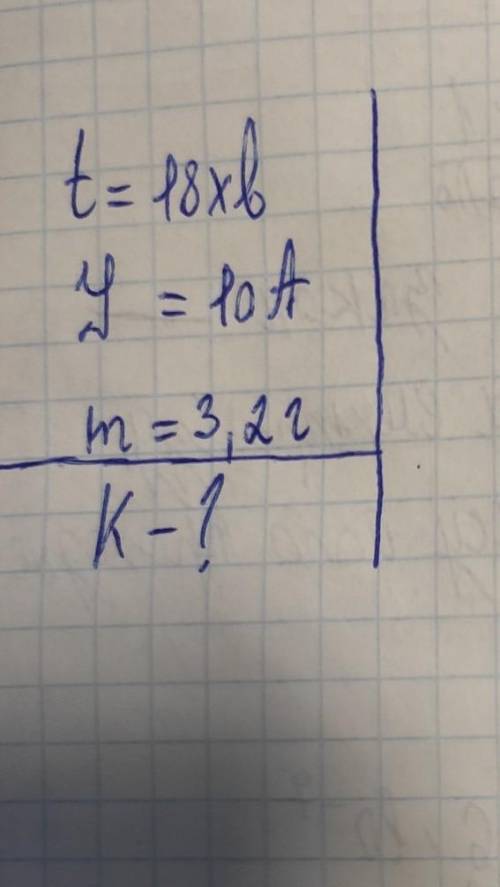 t = 18 хв
I = 10 А
m = 3,2 г
K - ?